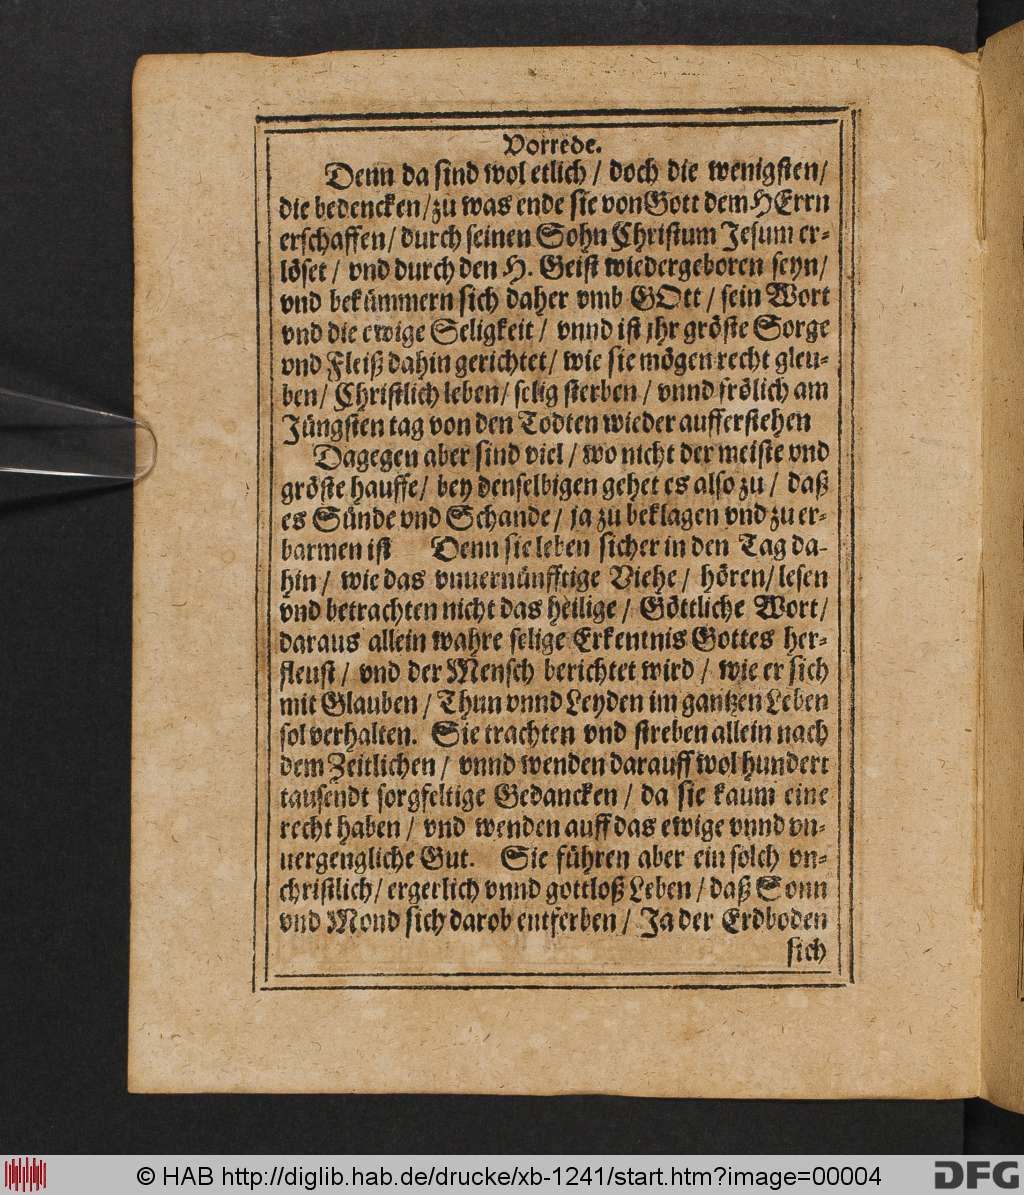 Vorrede.
Denn da sind wol etlich / doch die wenigsten/
die bedencken/zu was ende sie von Gott dem HErrn
erschaffen/ durch seinen Sohn Christum Jesum er-
löset / vnd durch den H. Geist wiedergeboren seyn/
vnd bekümmern sich daher vmb GOtt / sein Wort
vnd die ewige Seligkeit / vnnd ist ihr gröste Sorge
vnd Fleiß dahin gerichtet/ wie sie mögen recht gleu-
ben/ Christlich leben/ selig sterben / vnnd frölich am
Jüngsten tag von den Todten wieder aufferstehen
Dagegen aber sind viel / wo nicht der meiste vnd
gröste hauffe/ bey denselbigen gehet es also zu / daß
es Sünde vnd Schande/ ja zu beklagen vnd zu er-
barmen ist Denn sie leben sicher in den Tag da-
hin / wie das vnuernünfftige Viehe / hören/ lesen
vnd betrachten nicht das heilige / Göttliche Wort/
daraus allein wahre selige Erkentnis Gottes her-
fleust / vnd der Mensch berichtet wird / wie er sich
mit Glauben / Thun vnnd Leyden im gantzen Leben
sol verhalten. Sie trachten vnd streben allein nach
dem Zeitlichen / vnnd wenden darauff wol hundert
tausendt sorgfeltige Gedancken / da sie kaum eine
recht haben / vnd wenden auff das ewige vnnd vn-
uergengliche Gut. Sie führen aber ein solch vn-
christlich/ ergerlich vnnd gottloß Leben / daß Sonn
vnd Mond sich darob entferben / Ja der Erdboden
sich
© HAB http://diglib.hab.de/drucke/xb-1241/start.htm?image=00004
DFG